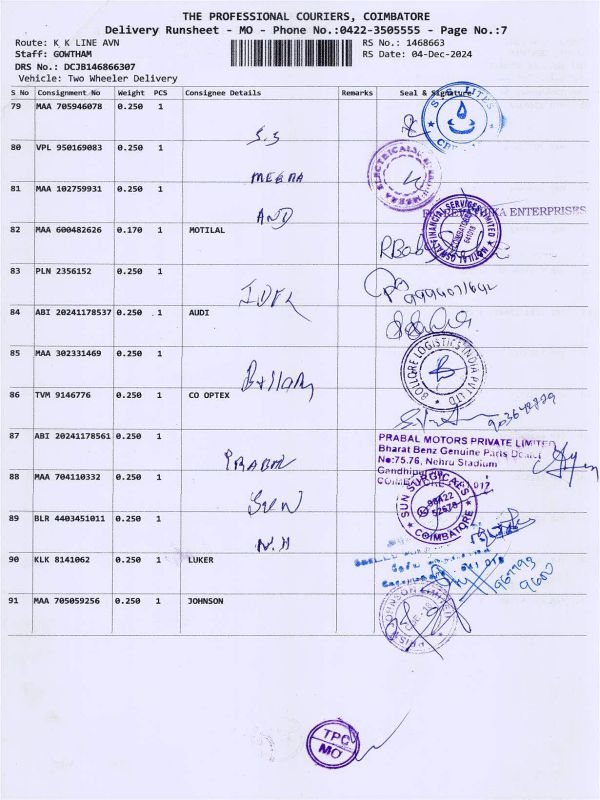 THE PROFESSIONAL COURIERS, COIMBATORE
Delivery Runsheet - MO - Phone No.:0422-3505555 - Page No.:7
Route: K K LINE AVN
RS No.: 1468663
Staff: GOWTHAM
RS Date: 04-Dec-2024
DRS No.: DCJB146866307
Vehicle: Two Wheeler Delivery
S No Consignment No Weight PCS Consignee Details Remarks Seal & Signature
79 MAA 705946078 0.250 1
S.S
80 VPL 950169083 0.250 1
MEERA
81 MAA 102759931 0.250 1
AND
ENTERPRISES
82 MAA 600482626 0.170 1 MOTILAL
MOTILAL OSWAL FINANCIAL SERVICES LIMITED
COIMBATORE
641018
83 PLN 2356152 0.250 1
84 ABI 20241178537 0.250 1 AUDI
85 MAA 302331469 0.250 1
BOLLORE LOGISTICS INDIA PVT LTD
86 TVM 9146776 0.250 1 CO OPTEX
87 ABI 20241178561 0.250 1
PRABAL
PRABAL MOTORS PRIVATE LIMITED
Bharat Benz Genuine Parts
No:75.76, Nehru Stadium
88 MAA 704110332 0.250 1
SUN
SUN SURGICALS
COIMBATORE
89 BLR 4403451011 0.250 1
N.H
90 KLK 8141062 0.250 1 LUKER
91 MAA 705059256 0.250 1 JOHNSON
TPC
MO